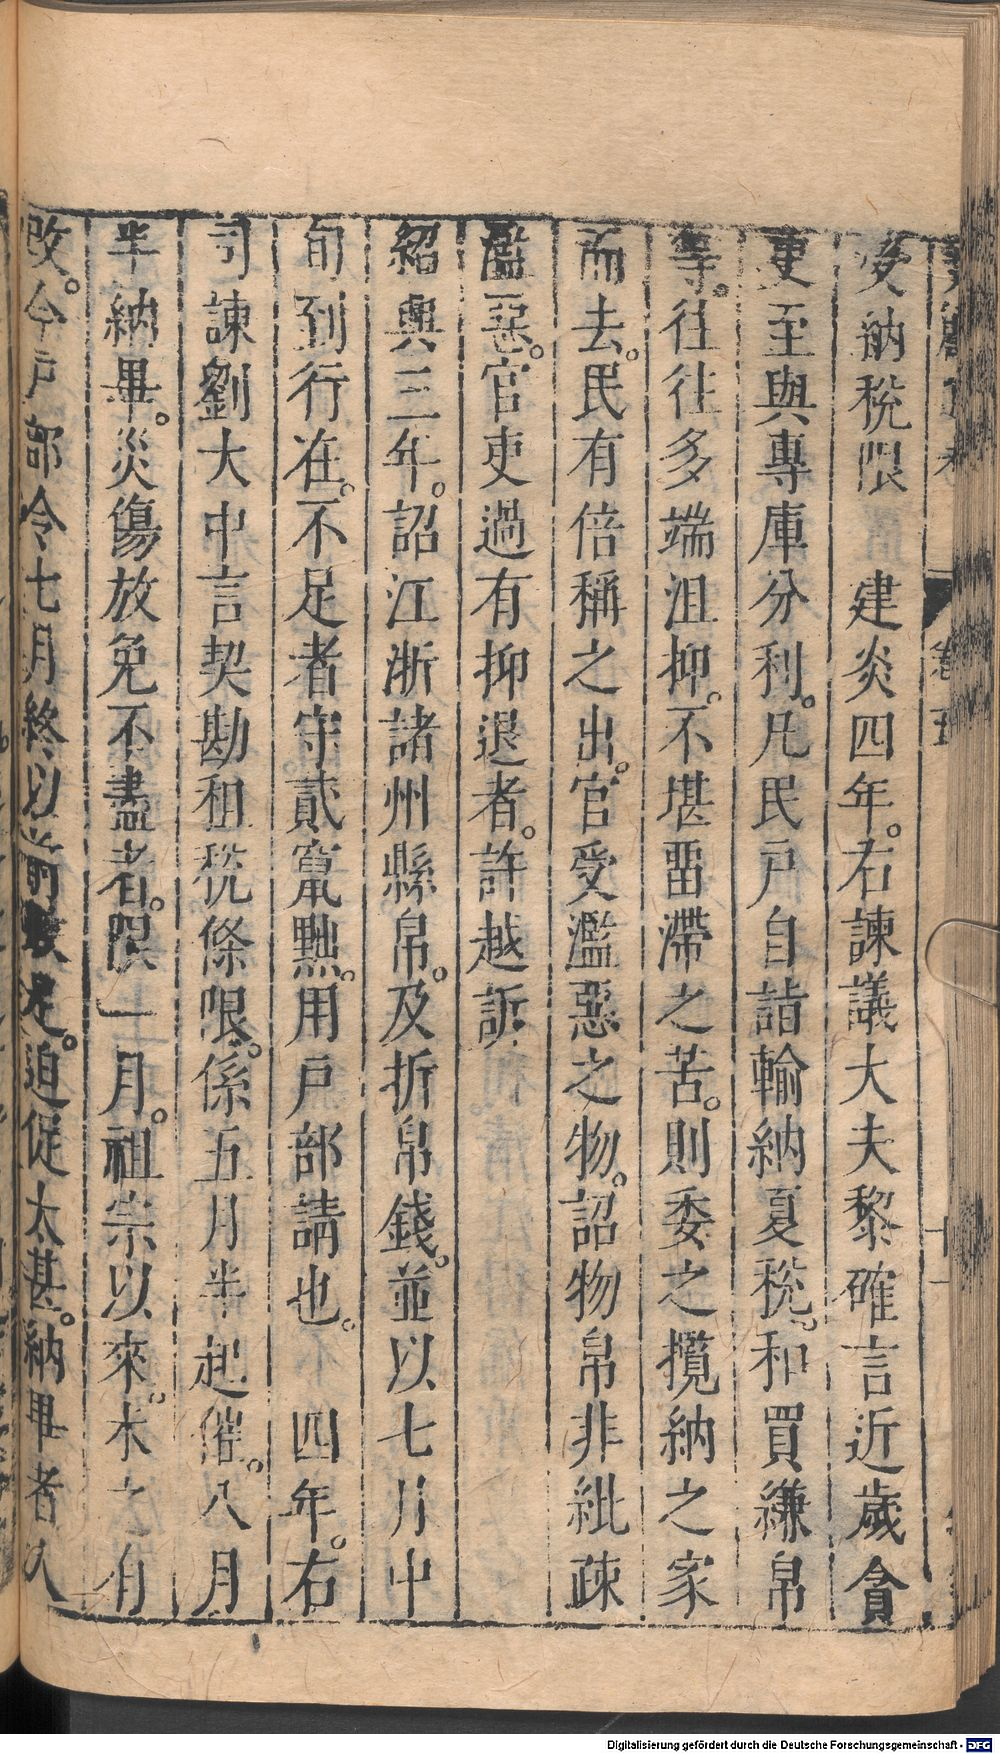 受納稅限　建炎四年。右諫議大夫黎確言近歲貪
吏至與專庫分利。凡民戶自詣輸納夏稅。和買縑帛
等。往往多端沮抑。不堪畱滯之苦。則委之攬納之家
而去。民有倍稱之出。官受濫惡之物。詔物帛非紕疎
濫惡。官吏過有抑退者。許越訴
紹興三年。詔江浙諸州縣帛。及折帛錢。並以七月中
旬到行在。不足者守貳竄黜。用戶部請也。　四年。右
司諫劉大中言契勘租稅條限。係五月半起催。八月
半納畢。災傷放免不盡者。限一月。祖宗以來。未之有
改。今戶部令七月終以前數足。迫促太甚。納畢者人
卷
十一
Digitalisierung gefördert durch die Deutsche Forschungsgemeinschaft - DFG